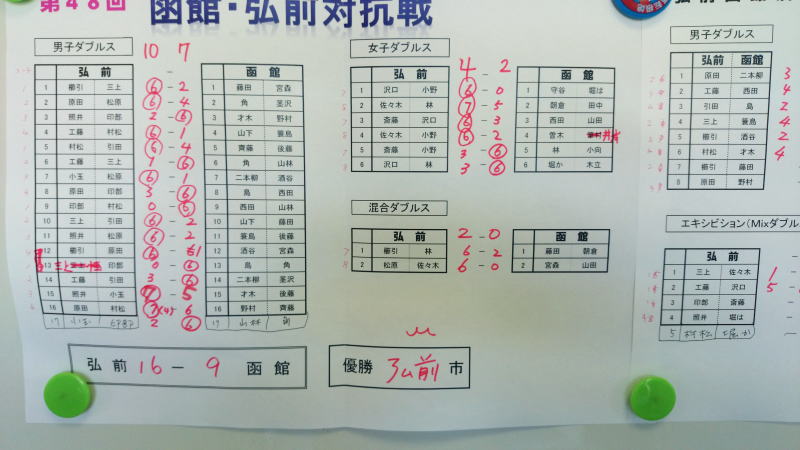 第48回 函館・弘前対抗戦
男子ダブルス 10 7
弘前 - 函館
1 櫛引 三上 6 - 2 1 藤田 宮森
2 原田 松原 6 - 4 2 角 茎沢
3 照井 印部 2 - 6 3 才木 野村
4 工藤 村松 6 - 1 4 山下 簑島
5 村松 引田 6 - 4 5 齊藤 後藤
6 工藤 三上 1 - 6 6 角 山林
7 小玉 松原 6 - 1 7 二本柳 酒谷
8 原田 印部 3 - 6 8 島 西田
9 印部 村松 0 - 6 9 西田 山林
10 三上 引田 6 - 2 10 山下 藤田
11 照井 松原 6 - 2 11 簑島 後藤
12 櫛引 原田 6 - 1 12 酒谷 宮森
13 印部 0 - 6 13 島 角
14 工藤 引田 3 - 6 14 二本柳 茎沢
15 照井 小玉 7 - 5 15 才木 後藤
16 原田 村松 7 (4) 6 16 野村 齊藤
17 小玉 印部 2 6 17 山林 角
女子ダブルス 4 - 2
弘前 函館
1 沢口 小野 6 - 0 1 守谷 堀は
2 佐々木 林 7 - 5 2 朝倉 田中
3 斎藤 沢口 6 - 3 3 西田 山田
4 佐々木 小野 6 - 2 4 曽木
5 斎藤 小野 3 - 6 5 林 小向
6 沢口 林 3 - 6 6 堀か 木立
混合ダブルス
弘前 2 - 0 函館
1 櫛引 林 6 - 2 1 藤田 朝倉
2 松原 佐々木 6 - 0 2 宮森 山田
弘前 16 - 9 函館
優勝 弘前 市
男子ダブルス
弘前 函館
1 原田 二本柳 3
2 工藤 西田 4
3 引田 島 2
4 三上 簑島 4
5 櫛引 酒谷 2
6 村松 才木 4
7 櫛引 藤田
8 原田 野村
エキシビション(Mixダブル
弘前
1 三上 佐々木 1 -
2 工藤 沢口 5 -
3 印部 斎藤
4 照井 堀は
5 村松 堀か